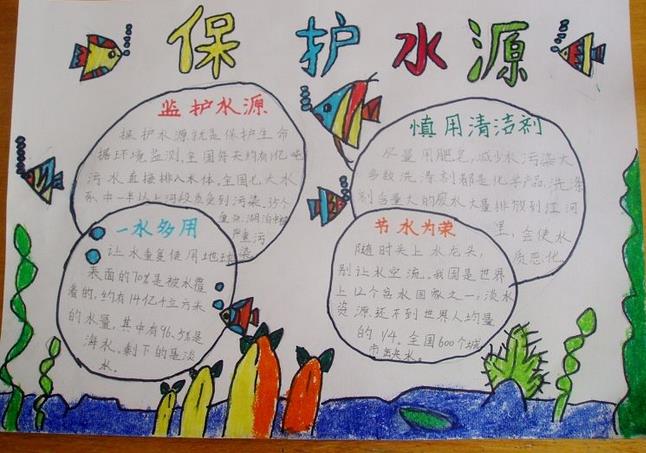 保护水源
监护水源
保护水源就是保护生命
据环境监测,全国每天约有1亿吨
污水直接排入水体。全国七大水
系中一半以上河段水质受到污染。35个
重点湖泊中
严重污
染
慎用清洁剂
尽量用肥皂,减少水污染大
多数洗涤剂都是化学产品,洗涤
剂含量大的废水大量排放到江河
里,会使水
质恶化
一水多用
让水重复使用地球
表面的70%是被水覆
着的,约有14亿4立方米
的水量,其中有96.5%是
海水。剩下的是淡
水。
节水为荣
随时关上水龙头,
别让水空流。我国是世界
上12个贫水国家之一,淡水
资源还不到世界人均量
的1/4。全国600个城
市缺水。